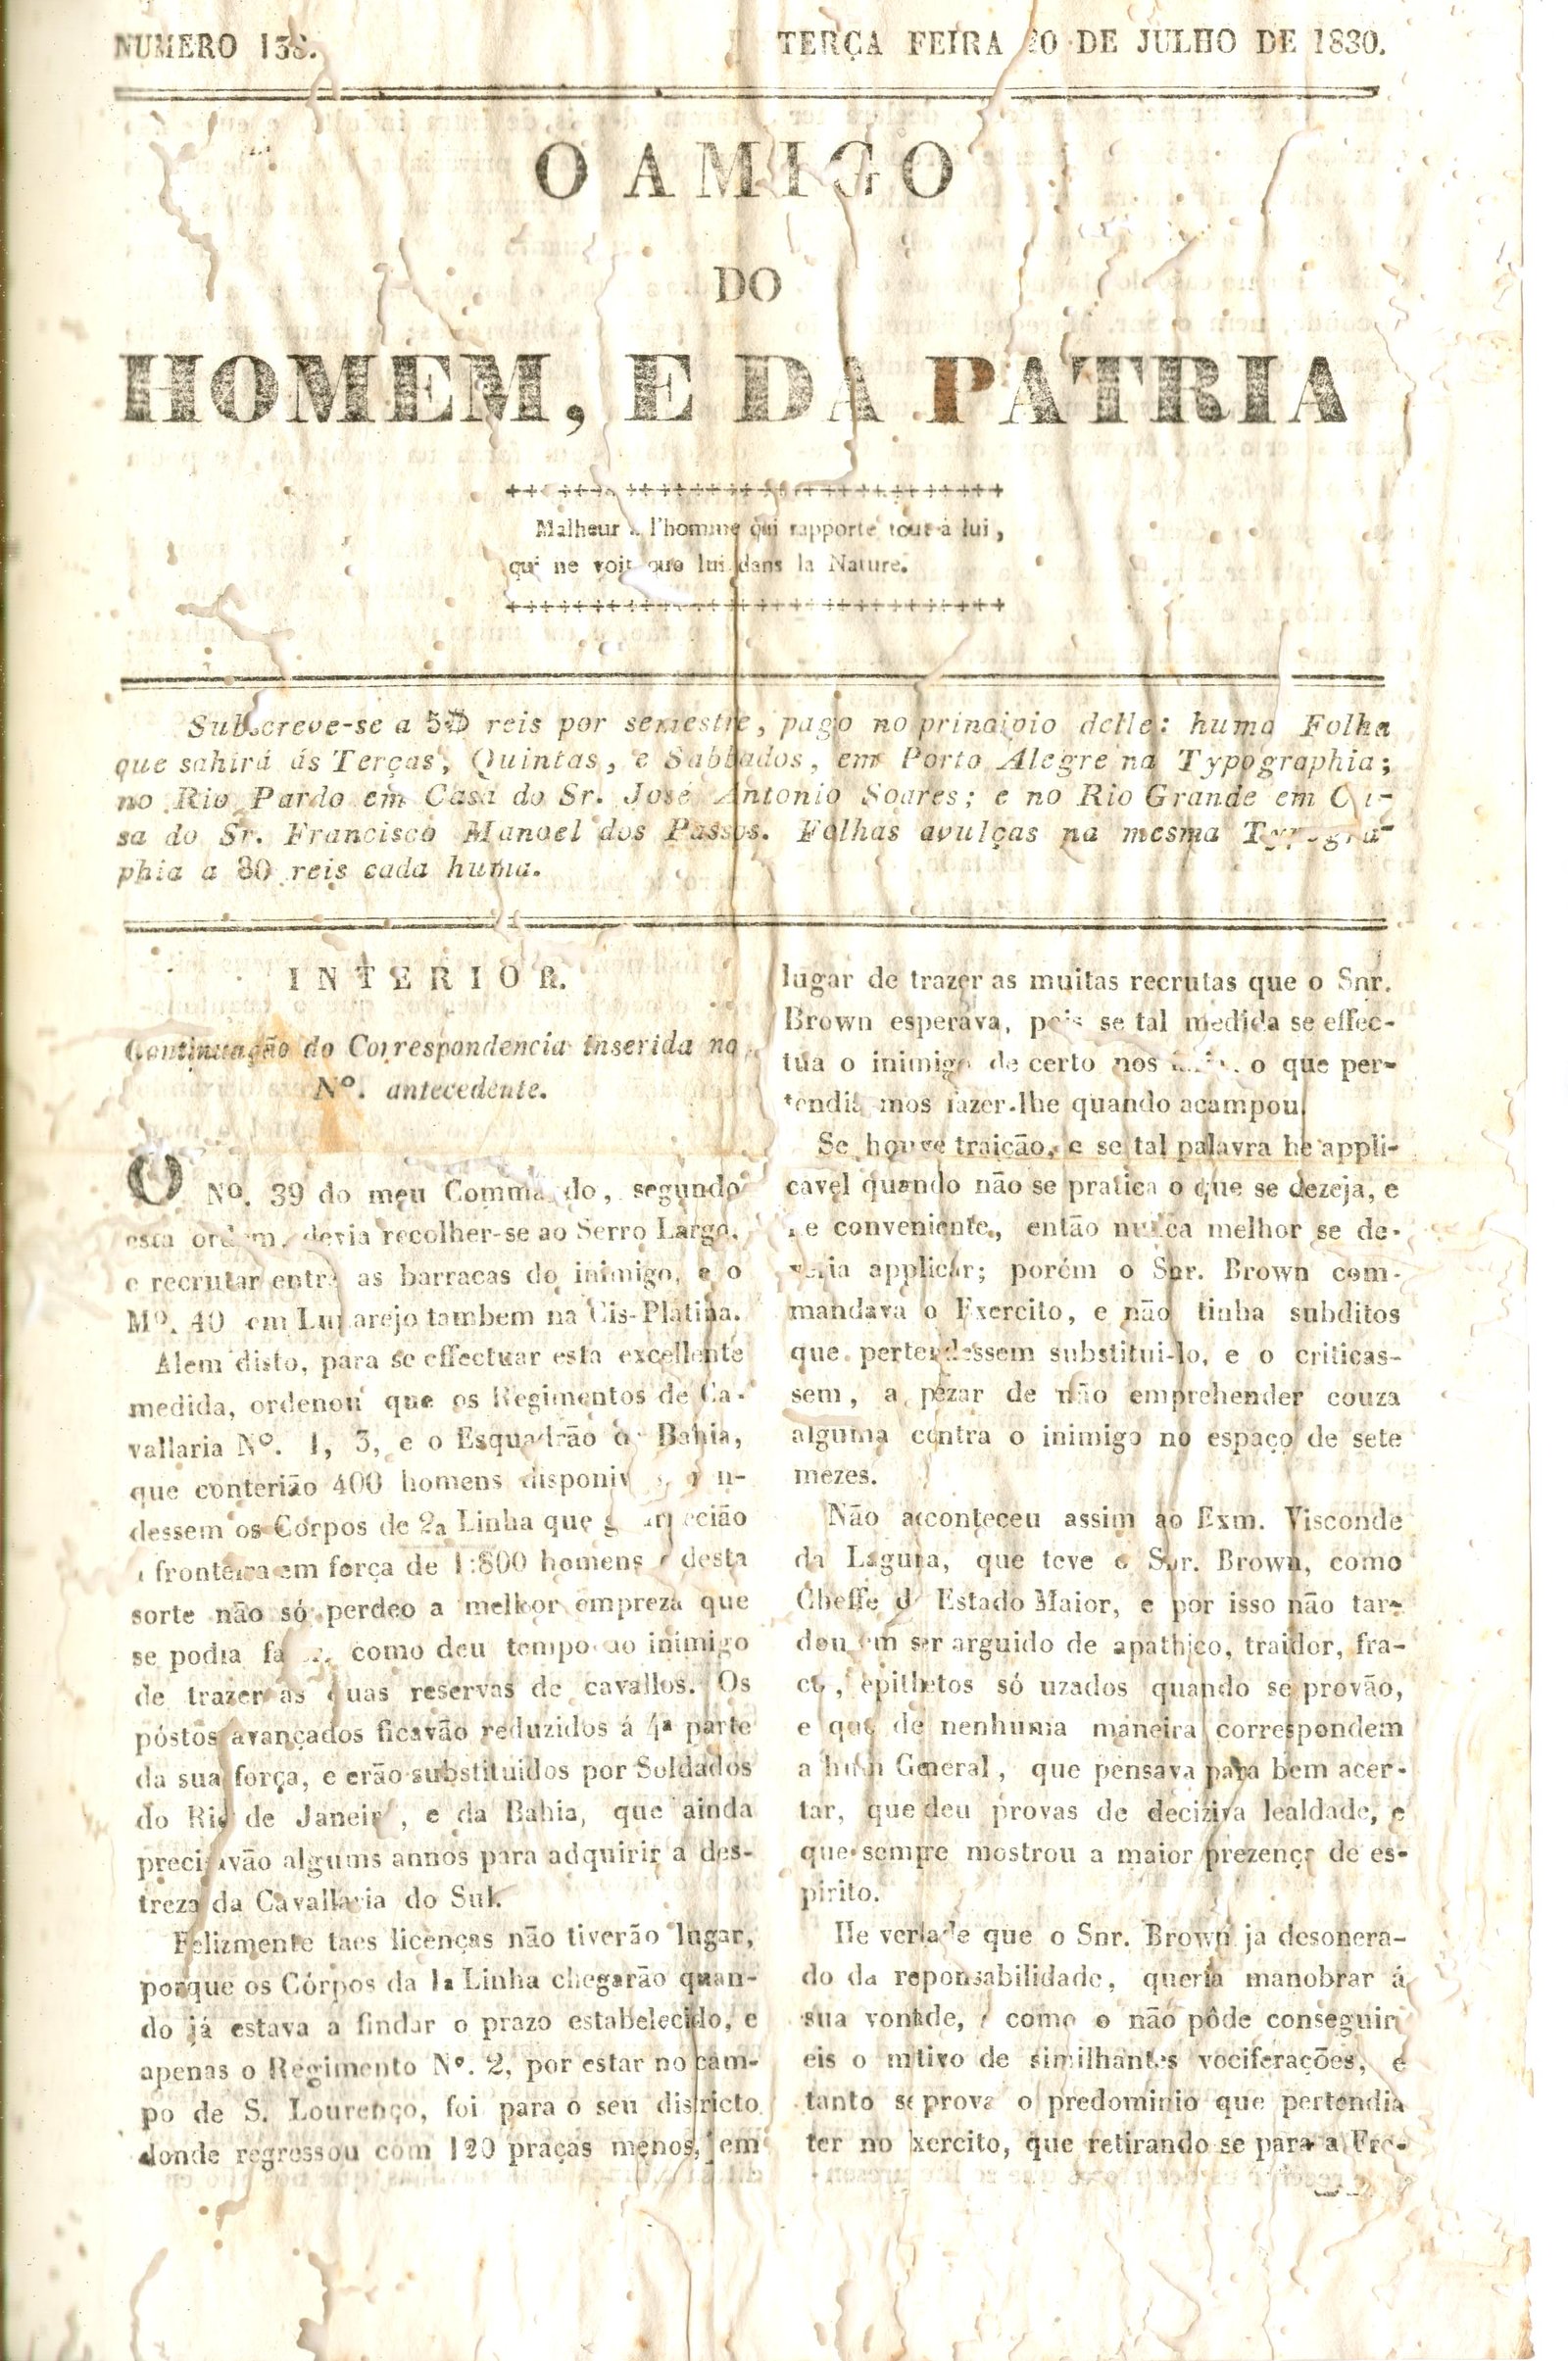 NUMERO 138.
TERÇA FEIRA 20 DE JULHO DE 1830.
O AMIGO
DO
HOMEM, E DA PATRIA
Malheur l'homme qui rapporte tout à lui,
qui ne voit que lui dans la Nature.
Subscreve-se a 5$ reis por semestre, pago no principio delle: huma Folha
que sahirá ás Terças, Quintas, e Sabbados, em Porto Alegre na Typographia;
no Rio Pardo em Casa do Sr. José Antonio Soares; e no Rio Grande em Ca-
sa do Sr. Francisco Manoel dos Passos. Folhas avulças na mesma Typogra-
phia a 80 reis cada huma.
INTERIOR.
Continuação do Correspondencia inserida no
Nº. antecedente.
O Nº. 39 do meu Commando, segundo
esta ordem, devia recolher-se ao Serro Largo,
e recrutar entre as barracas do inimigo, e o
Mº. 40 em Lunarejo tambem na Cis-Platina.
Alem disto, para se effectuar esta excellente
medida, ordenou que os Regimentos de Ca-
vallaria Nº. 1, 3, e o Esquadrão da Bahia,
que conterião 400 homens disponiveis,
dessem os Córpos de 2a Linha que guarnecião
a fronteira em força de 1:800 homens e desta
sorte não só perdeo a melhor empreza que
se podia fazer, como deu tempo ao inimigo
de trazer as suas reservas de cavallos. Os
póstos avançados ficavão reduzidos á 4ª parte
da sua força, e erão substituidos por Soldados
do Rio de Janeiro, e da Bahia, que ainda
precisavão alguns annos para adquirir a des-
treza da Cavallaria do Sul.
Felizmente taes licenças não tiverão lugar,
porque os Córpos da 1a Linha chegarão quan-
do já estava a findar o prazo estabelecido, e
apenas o Regimento Nº. 2, por estar no cam-
po de S. Lourenço, foi para o seu districto
donde regressou com 120 praças menos, em
lugar de trazer as muitas recrutas que o Snr.
Brown esperava, pois se tal medida se effec-
tua o inimigo de certo nos o que per-
tendiamos fazer-lhe quando acampou.
Se houve traição, e se tal palavra he appli-
cavel quando não se pratica o que se dezeja, e
he conveniente, então nunca melhor se de-
veria applicar; porém o Snr. Brown com-
mandava o Exercito, e não tinha subditos
que pertendessem substitui-lo, e o criticas-
sem, a pezar de não emprehender couza
alguma contra o inimigo no espaço de sete
mezes.
Não aconteceu assim ao Exm. Visconde
da Laguna, que teve o Snr. Brown, como
Cheffe d' Estado Maior, e por isso não tar-
dou em ser arguido de apathico, traidor, fra-
co, epithetos só uzados quando se provão,
e que de nenhuma maneira correspondem
a hum General, que pensava para bem acer-
tar, que deu provas de deciziva lealdade, e
que sempre mostrou a maior prezença de es-
pirito.
He verdade que o Snr. Brown ja desonera-
do da reponsabilidade, queria manobrar á
sua vontade, e como o não pôde conseguir
eis o motivo de similhantes vociferações, e
tanto se prova o predominio que pertendia
ter no Exercito, que retirando se para a Fre-